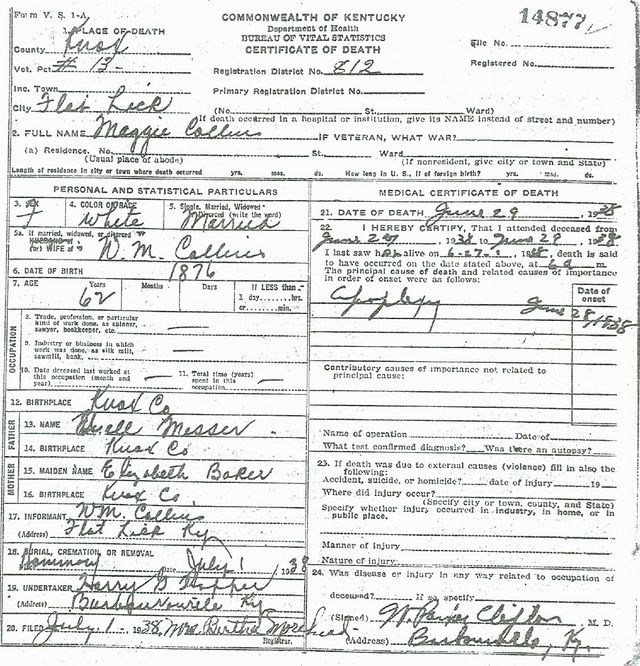 Form V. S. 1-A
COMMONWEALTH OF KENTUCKY
14877
Department of Health
BUREAU OF VITAL STATISTICS
CERTIFICATE OF DEATH
1. PLACE OF DEATH
County Knox
Vot. Pct. # 13
File No.
Registration District No. 812
Registered No.
Inc. Town
Primary Registration District No.
City Flat Lick (No. St. Ward)
(If death occurred in a hospital or institution, give its NAME instead of street and number)
2. FULL NAME Maggie Collins IF VETERAN, WHAT WAR?
(a) Residence. No. St. Ward
(Usual place of abode) (If nonresident, give city or town and State)
Length of residence in city or town where death occurred yrs. mos. ds. How long in U. S., if of foreign birth? yrs. mos. ds.
PERSONAL AND STATISTICAL PARTICULARS
3. SEX F
4. COLOR OR RACE White
5. Single, Married, Widowed or Divorced (write the word) Married
5a. If married, widowed, or divorced
HUSBAND of
(or) WIFE of W. M. Collins
6. DATE OF BIRTH 1876
7. AGE Years 62 Months - Days If LESS than 1 day hrs. or min.
OCCUPATION
8. Trade, profession, or particular
kind of work done, as spinner,
sawyer, bookkeeper, etc.
9. Industry or business in which
work was done, as silk mill,
sawmill, bank,
10. Date deceased last worked at
this occupation (month and
year)
11. Total time (years)
spent in this
occupation
12. BIRTHPLACE Knox Co
FATHER
13. NAME Messer
14. BIRTHPLACE Knox Co
MOTHER
15. MAIDEN NAME Elizabeth Baker
16. BIRTHPLACE Knox Co
17. INFORMANT WM. Collins
(Address) Flat Lick Ky
18. BURIAL, CREMATION, OR REMOVAL
Date July 1, 1938
19. UNDERTAKER Harry
(Address) Ky
20. FILED July 1 - 1938, Mrs. Bertha Morehead
Registrar.
MEDICAL CERTIFICATE OF DEATH
21. DATE OF DEATH June 29, 1938
22. I HEREBY CERTIFY, That I attended deceased from
June 27, 1938 to June 29, 1938
I last saw her alive on 6-27, 1938, death is said
to have occurred on the date stated above, at m.
The principal cause of death and related causes of importance
in order of onset were as follows:
Date of
onset
Apoplexy June 28/1938
Contributory causes of importance not related to
principal cause:
Name of operation Date of
What test confirmed diagnosis? Was there an autopsy?
23. If death was due to external causes (violence) fill in also the
following:
Accident, suicide, or homicide? date of injury 19
Where did injury occur?
(Specify city or town, county, and State)
Specify whether injury occurred in industry, in home, or in
public place.
Manner of injury
Nature of injury
24. Was disease or injury in any way related to occupation of
deceased? If so, specify
(Signed) W. Parker Clifton M. D.
(Address) Barbourville, Ky.